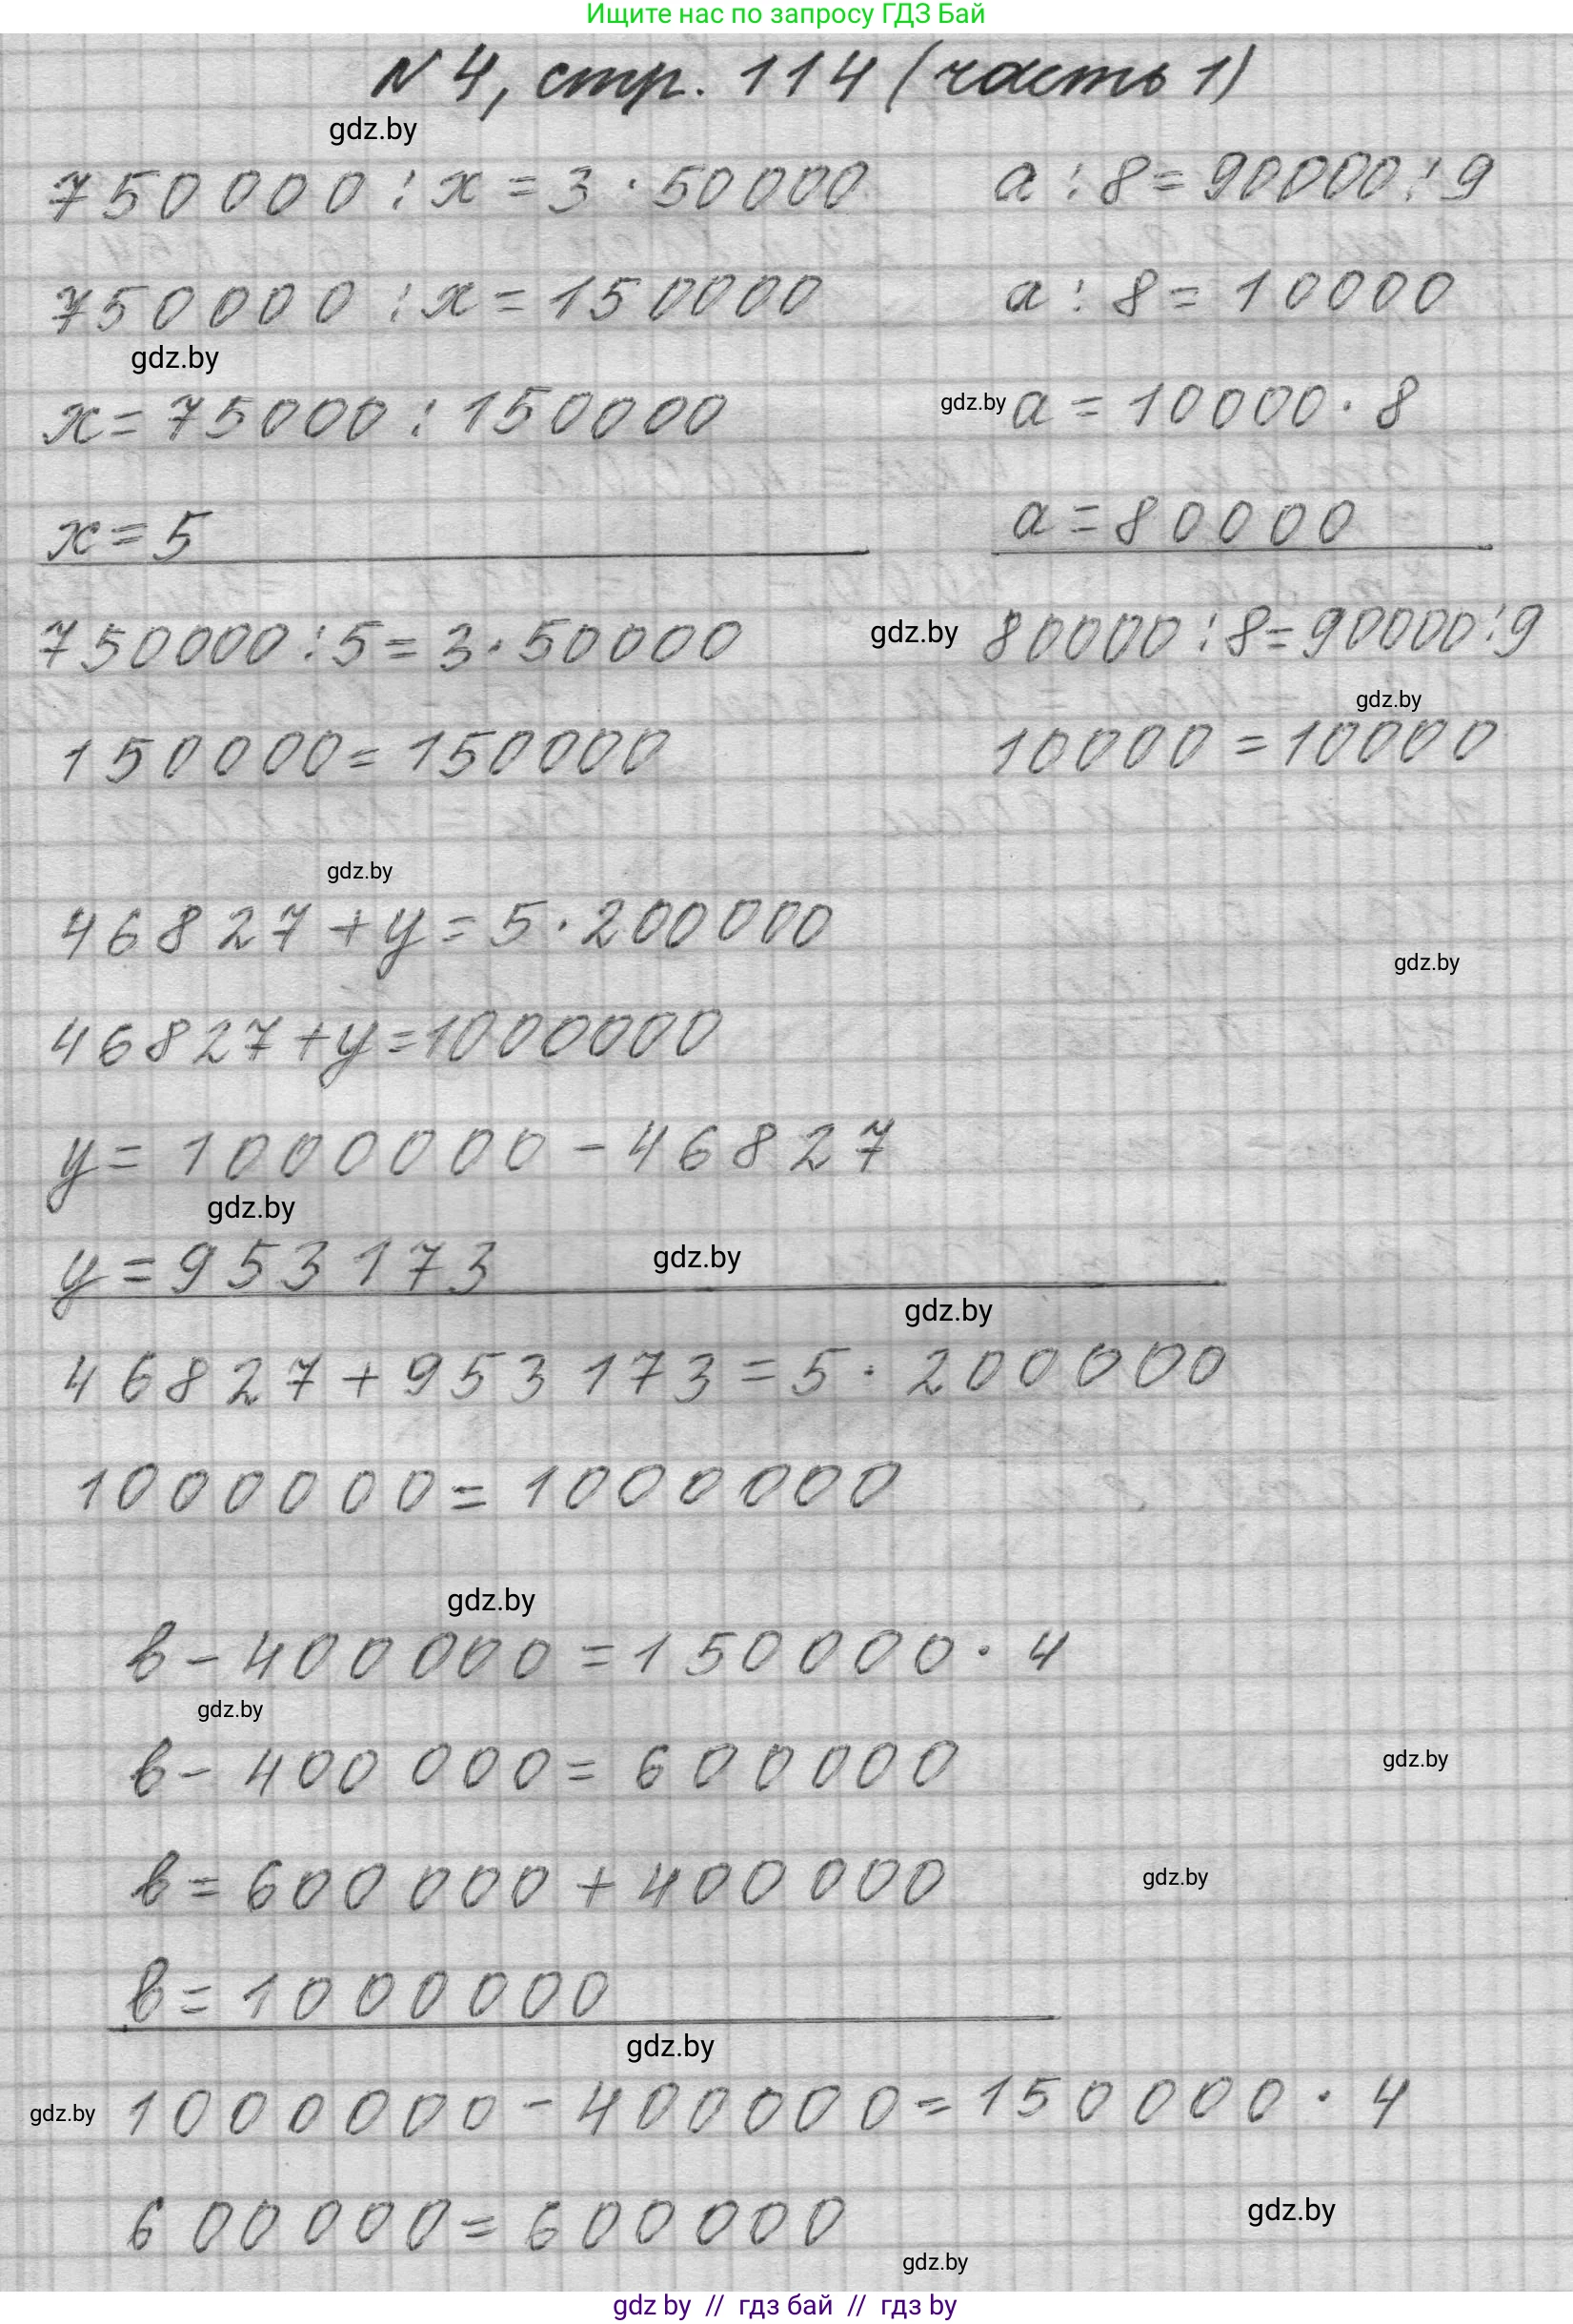 Ищите нас по запросу ГДЗ Бай
N 4, стр. 114 (часть 1)
gdz.by
750000 : x = 3 · 50000
750000 : x = 150000
gdz.by
x = 75000 : 150000
x = 5
750000 : 5 = 3 · 50000
150000 = 150000
a : 8 = 90000 : 9
a : 8 = 10000
gdz.by
a = 10000 · 8
a = 80000
gdz.by
80000 : 8 = 90000 : 9
gdz.by
10000 = 10000
gdz.by
46827 + y = 5 · 200000
gdz.by
46827 + y = 1000000
y = 1000000 - 46827
gdz.by
y = 953173
gdz.by
gdz.by
46827 + 953173 = 5 · 200000
1000000 = 1000000
gdz.by
в - 400000 = 150000 · 4
gdz.by
в - 400000 = 600000
gdz.by
в = 600000 + 400000
gdz.by
в = 1000000
gdz.by
gdz.by
1000000 - 400000 = 150000 · 4
600000 = 600000
gdz.by
gdz.by
gdz by // гдз бай // гдз by